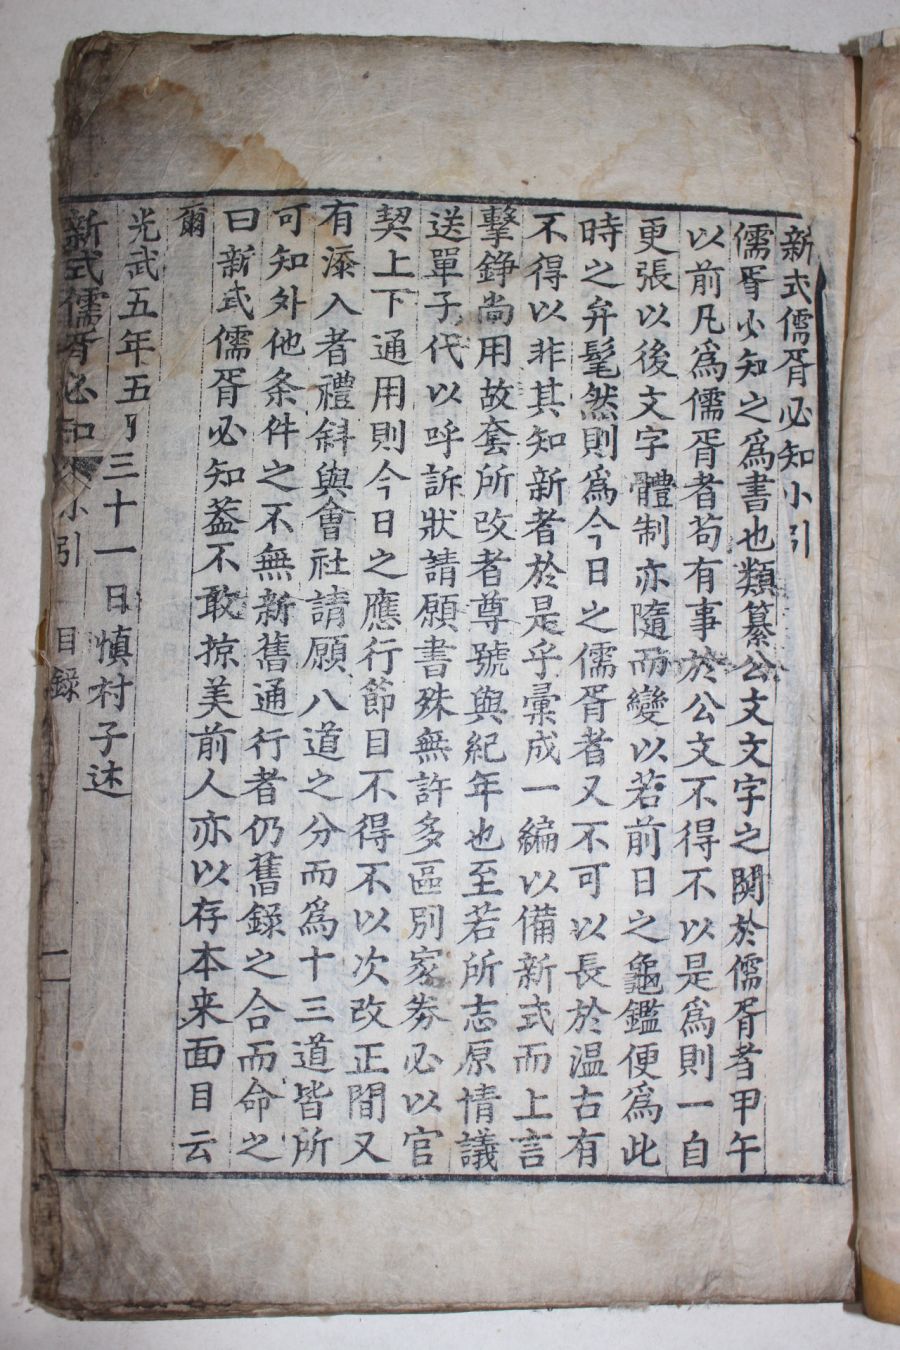 新式儒胥必知小引
儒胥必知之爲書也類纂公文文字之關於儒胥者甲午
以前凡爲儒胥者苟有事於公文不得不以是爲則一自
更張以後文字體制亦隨而變以若前日之龜鑑便爲此
時之弁髦然則爲今日之儒胥者又不可以長於温古有
不得以非其知新者於是乎彙成一編以備新式而上言
擊錚尚用故套所改者尊號與紀年也至若所志原情議
送單子代以呼訴狀請願書殊無許多區別家券必以官
契上下通用則今日之應行節目不得不以次改正間又
有添入者禮斜與會社請願八道之分而爲十三道皆所
可知外他条件之不無新舊通行者仍舊録之合而命之
曰新式儒胥必知盖不敢掠美前人亦以存本来面目云
爾
光武五年五月三十一日慎村子述
新式儒胥必知 小引 目録 一